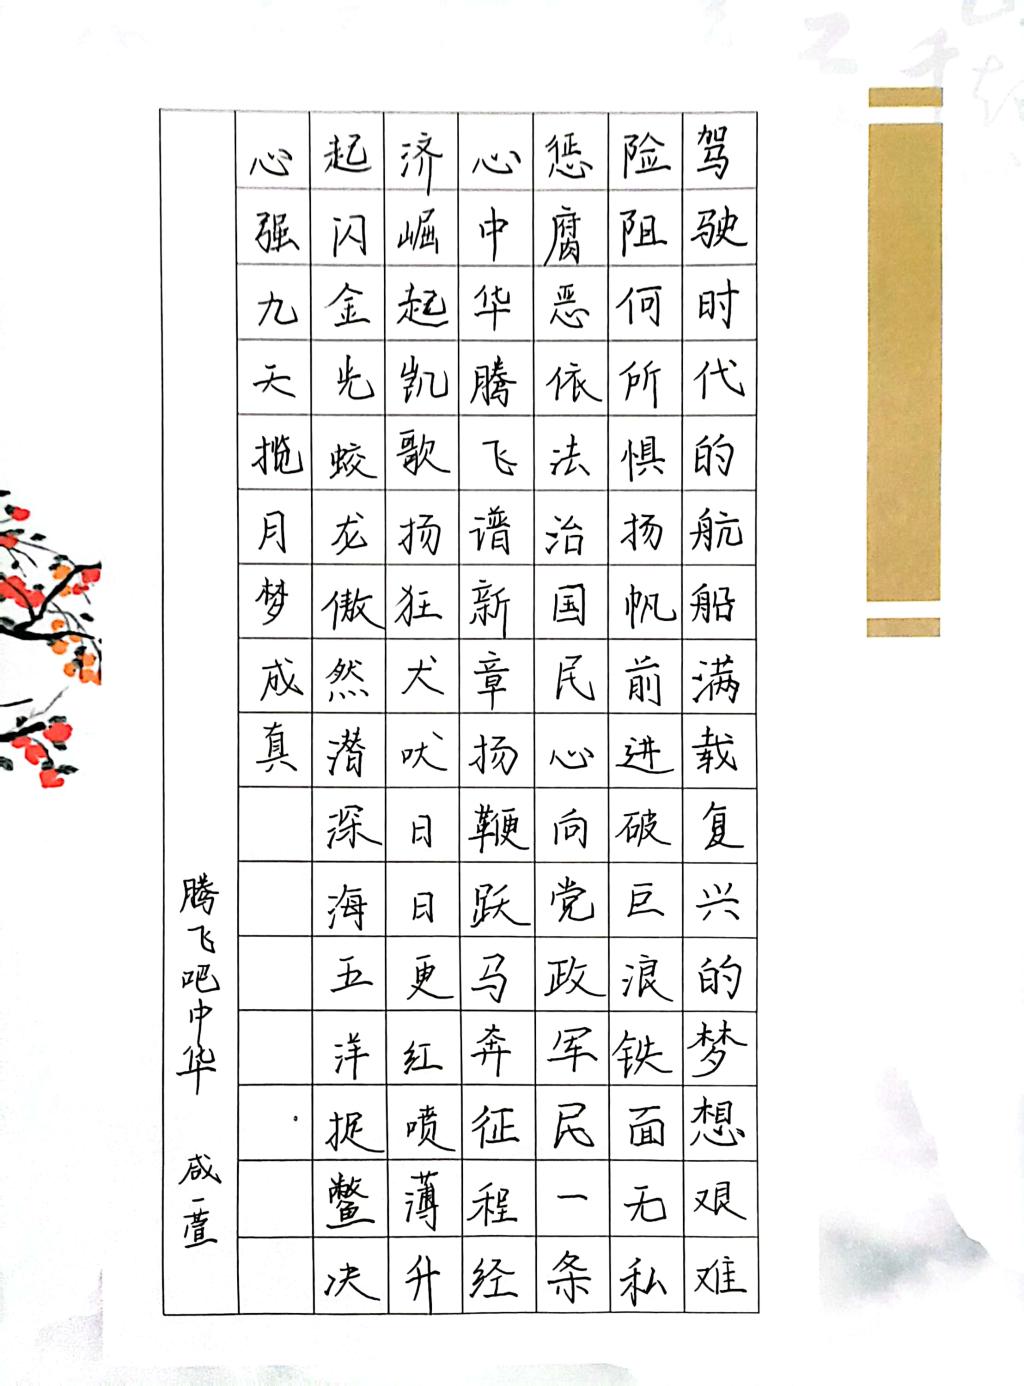 驾驶时代的航船满载复兴的梦想艰难
险阻何所惧扬帆前进破巨浪铁面无私
惩腐恶依法治国民心向党政军民一条
心中华腾飞谱新章扬鞭跃马奔征程经
济崛起凯歌扬狂犬吠日日更红喷薄升
起闪金光蛟龙傲然潜深海五洋捉鳖决
心强九天揽月梦成真
腾飞吧中华 咸一萱